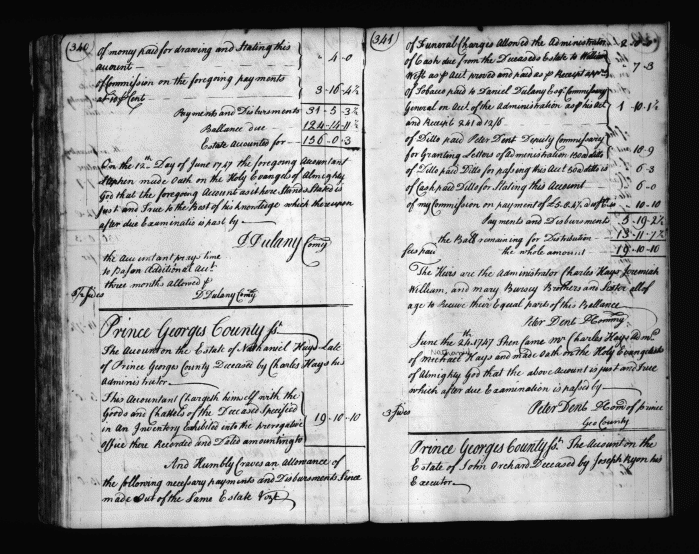 (340)
of money paid for drawing and Stating this
account — " 4-0
of Commission on the foregoing payments
at 10 P Cent 3-16-4½
Payments and Disbursements 31-5-3½
Ballance due 124-14-11½
Estate Accounted for 156-0-3
On the 12th Day of June 1747 the foregoing Accountant
Stephen made Oath on the Holy Evangels of Almighty
God that the foregoing Account as it here Stands Stated is
Just and True to the Best of his knowledge which thereupon
after due Examination is past by
D Dulany Comy
the Accountant prays time
to pass an Additional Acct.
three months allowed P
D Dulany Comy
Sides
Prince Georges County ss.
The Account on the Estate of Nathaniel Hays Late
of Prince Georges County Deceased by Charles Hays his
Administrator
This Accountant Chargeth himself with the
Goods and Chattels of the Deceased Specified
in An Inventory Exhibited into the prerogative 19-10-10
Office there Recorded and Dated amounting to
And Humbly Craves an Allowance of
the following necessary payments and Disbursements Since
made Out of the Same Estate Vizt
(341)
of Funeral Charges Allowed the Administrator
of Cash due from the Deceaseds Estate to William
Wift as P Act proved and paid as P Receipt " 7-3
of Tobacco paid to Daniel Dulany Esqr. Commissary
General on Act. of the Administration as P his Act 1-10-1½
and Receipt 241 a 12/6
of Ditto paid Peter Dent Deputy Commissary
for Granting Letters of Administration 10-9
of Ditto paid Ditto for passing this Act. 6-3
of Cash paid Ditto for Stating this Account 6-0
of my Commission on payment of 10-10
Payments and Disbursements 5-19-2½
the Ball remaining for Distribution 13-11-7½
fees paid the whole amount 19-10-10
The Heirs are the Administrator Charles Hays Jeremiah
William, and Mary Bursey Brothers and Sister all of
age to Receive their Equal part of this Ballance
Peter Dent D Commy
June the 24. 1747 Then Came Mr Charles Hays Admr.
of Michael Hays and made Oath on the Holy Evangels
of Almighty God that the above Account is Just and True
which after due Examination is passed by
3 sides
Peter Dent D Comy of Prince
Geo County
Prince Georges County ss. The Account on the
Estate of John Orchard Deceased by Joseph Ryon his
Executor